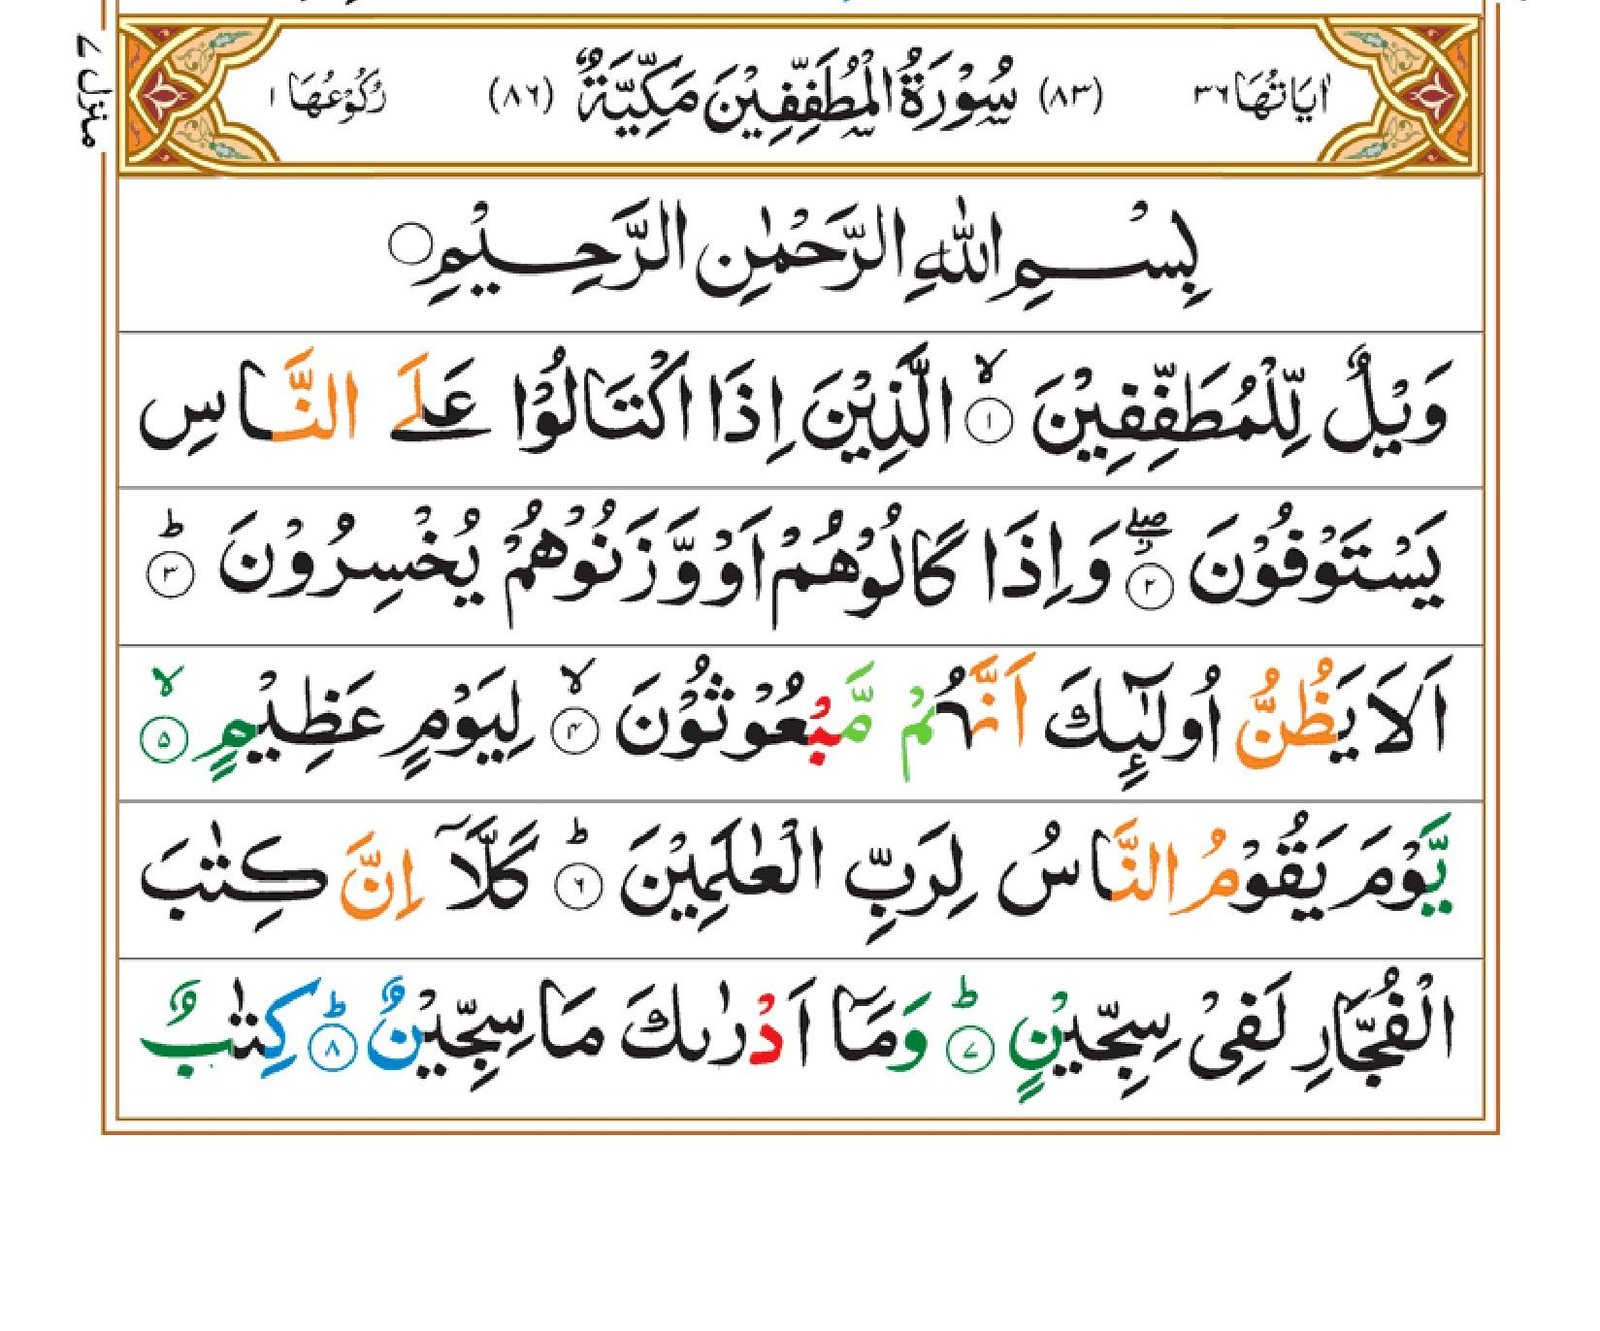 منزل ٧
اٰيَاتُهَا ٣٦ (٨٣) سُوْرَةُ الْمُطَفِّفِيْنَ مَكِّيَّةٌ (٨٦) رُكُوْعُهَا ١
بِسْمِ اللّٰهِ الرَّحْمٰنِ الرَّحِيْمِ ○
وَيْلٌ لِّلْمُطَفِّفِيْنَ ۙ‏﴿١﴾ الَّذِيْنَ اِذَا اكْتَالُوْا عَلَے النَّاسِ
يَسْتَوْفُوْنَ ۖ‏﴿٢﴾ وَاِذَا كَالُوْهُمْ اَوْ وَّزَنُوْهُمْ يُخْسِرُوْنَ ؕ‏﴿٣﴾
اَلَا يَظُنُّ اُولٰٓئِكَ اَنَّهُمْ مَّبْعُوْثُوْنَ ۙ‏﴿٤﴾ لِيَوْمٍ عَظِيْمٍ ۙ‏﴿٥﴾
يَّوْمَ يَقُوْمُ النَّاسُ لِرَبِّ الْعٰلَمِيْنَ ؕ‏﴿٦﴾ كَلَّاۤ اِنَّ كِتٰبَ
الْفُجَّارِ لَفِيْ سِجِّيْنٍ ؕ‏﴿٧﴾ وَمَاۤ اَدْرٰىكَ مَا سِجِّيْنٌ ؕ‏﴿٨﴾ كِتٰبٌ